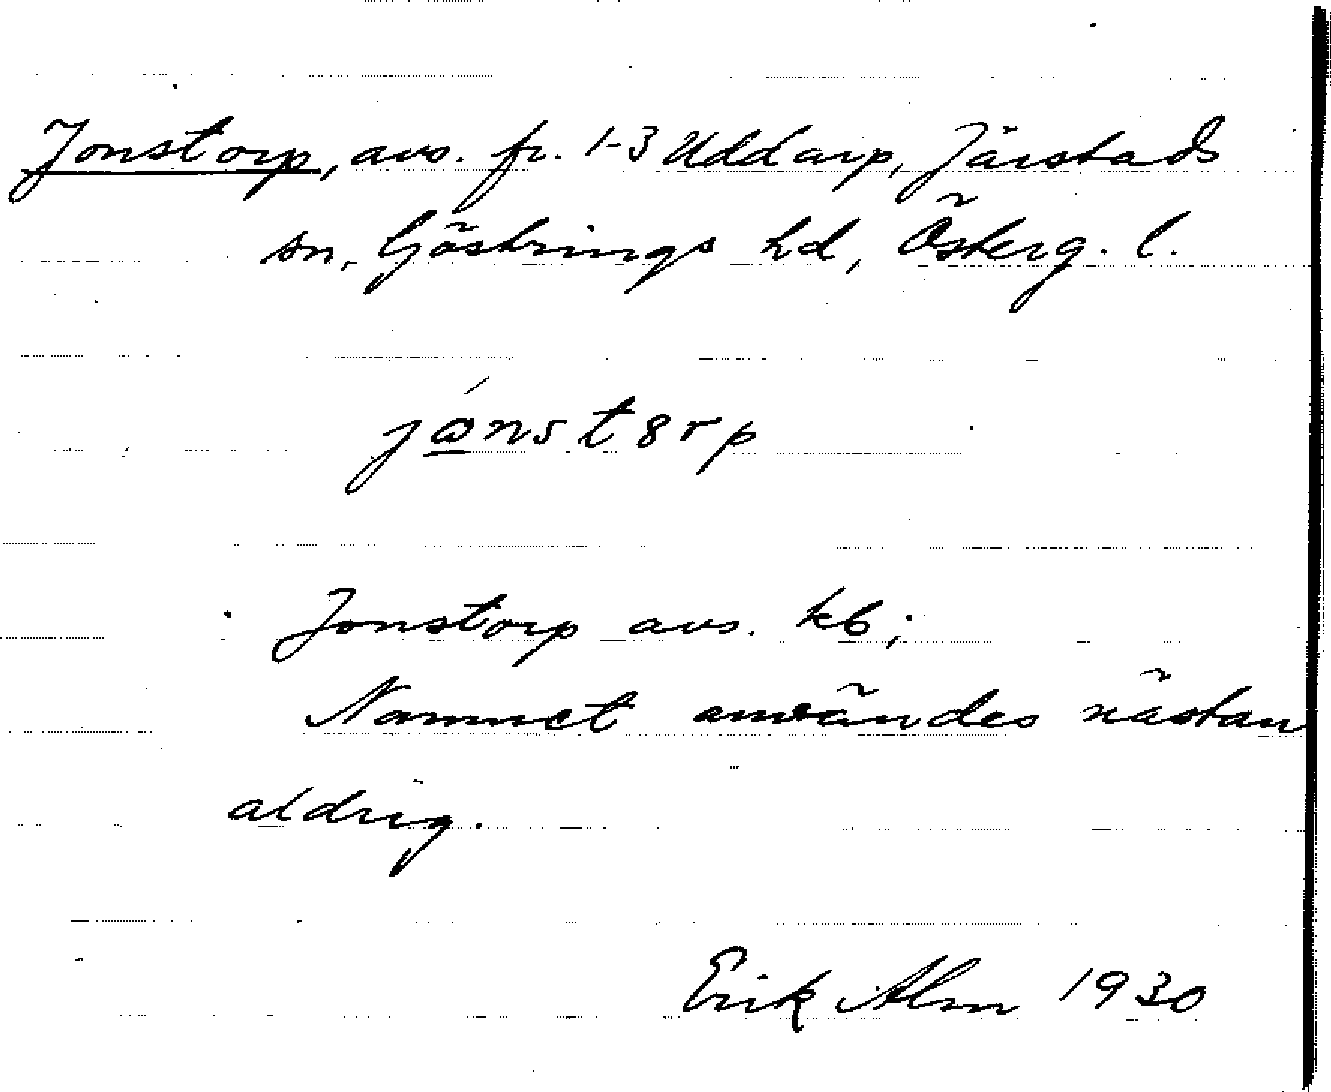 Jonstorp, avs. fr. 1-3 Uddarp, Järstads
sn, Göstrings hd, Österg. l.
Jonstorp avs. kb;
Namnet användes nästan
aldrig.
Erik Alm 1930